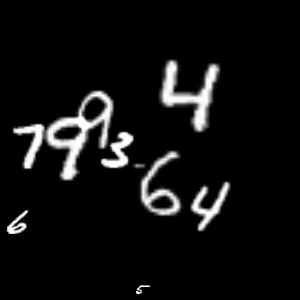 4
7993
64
6
5